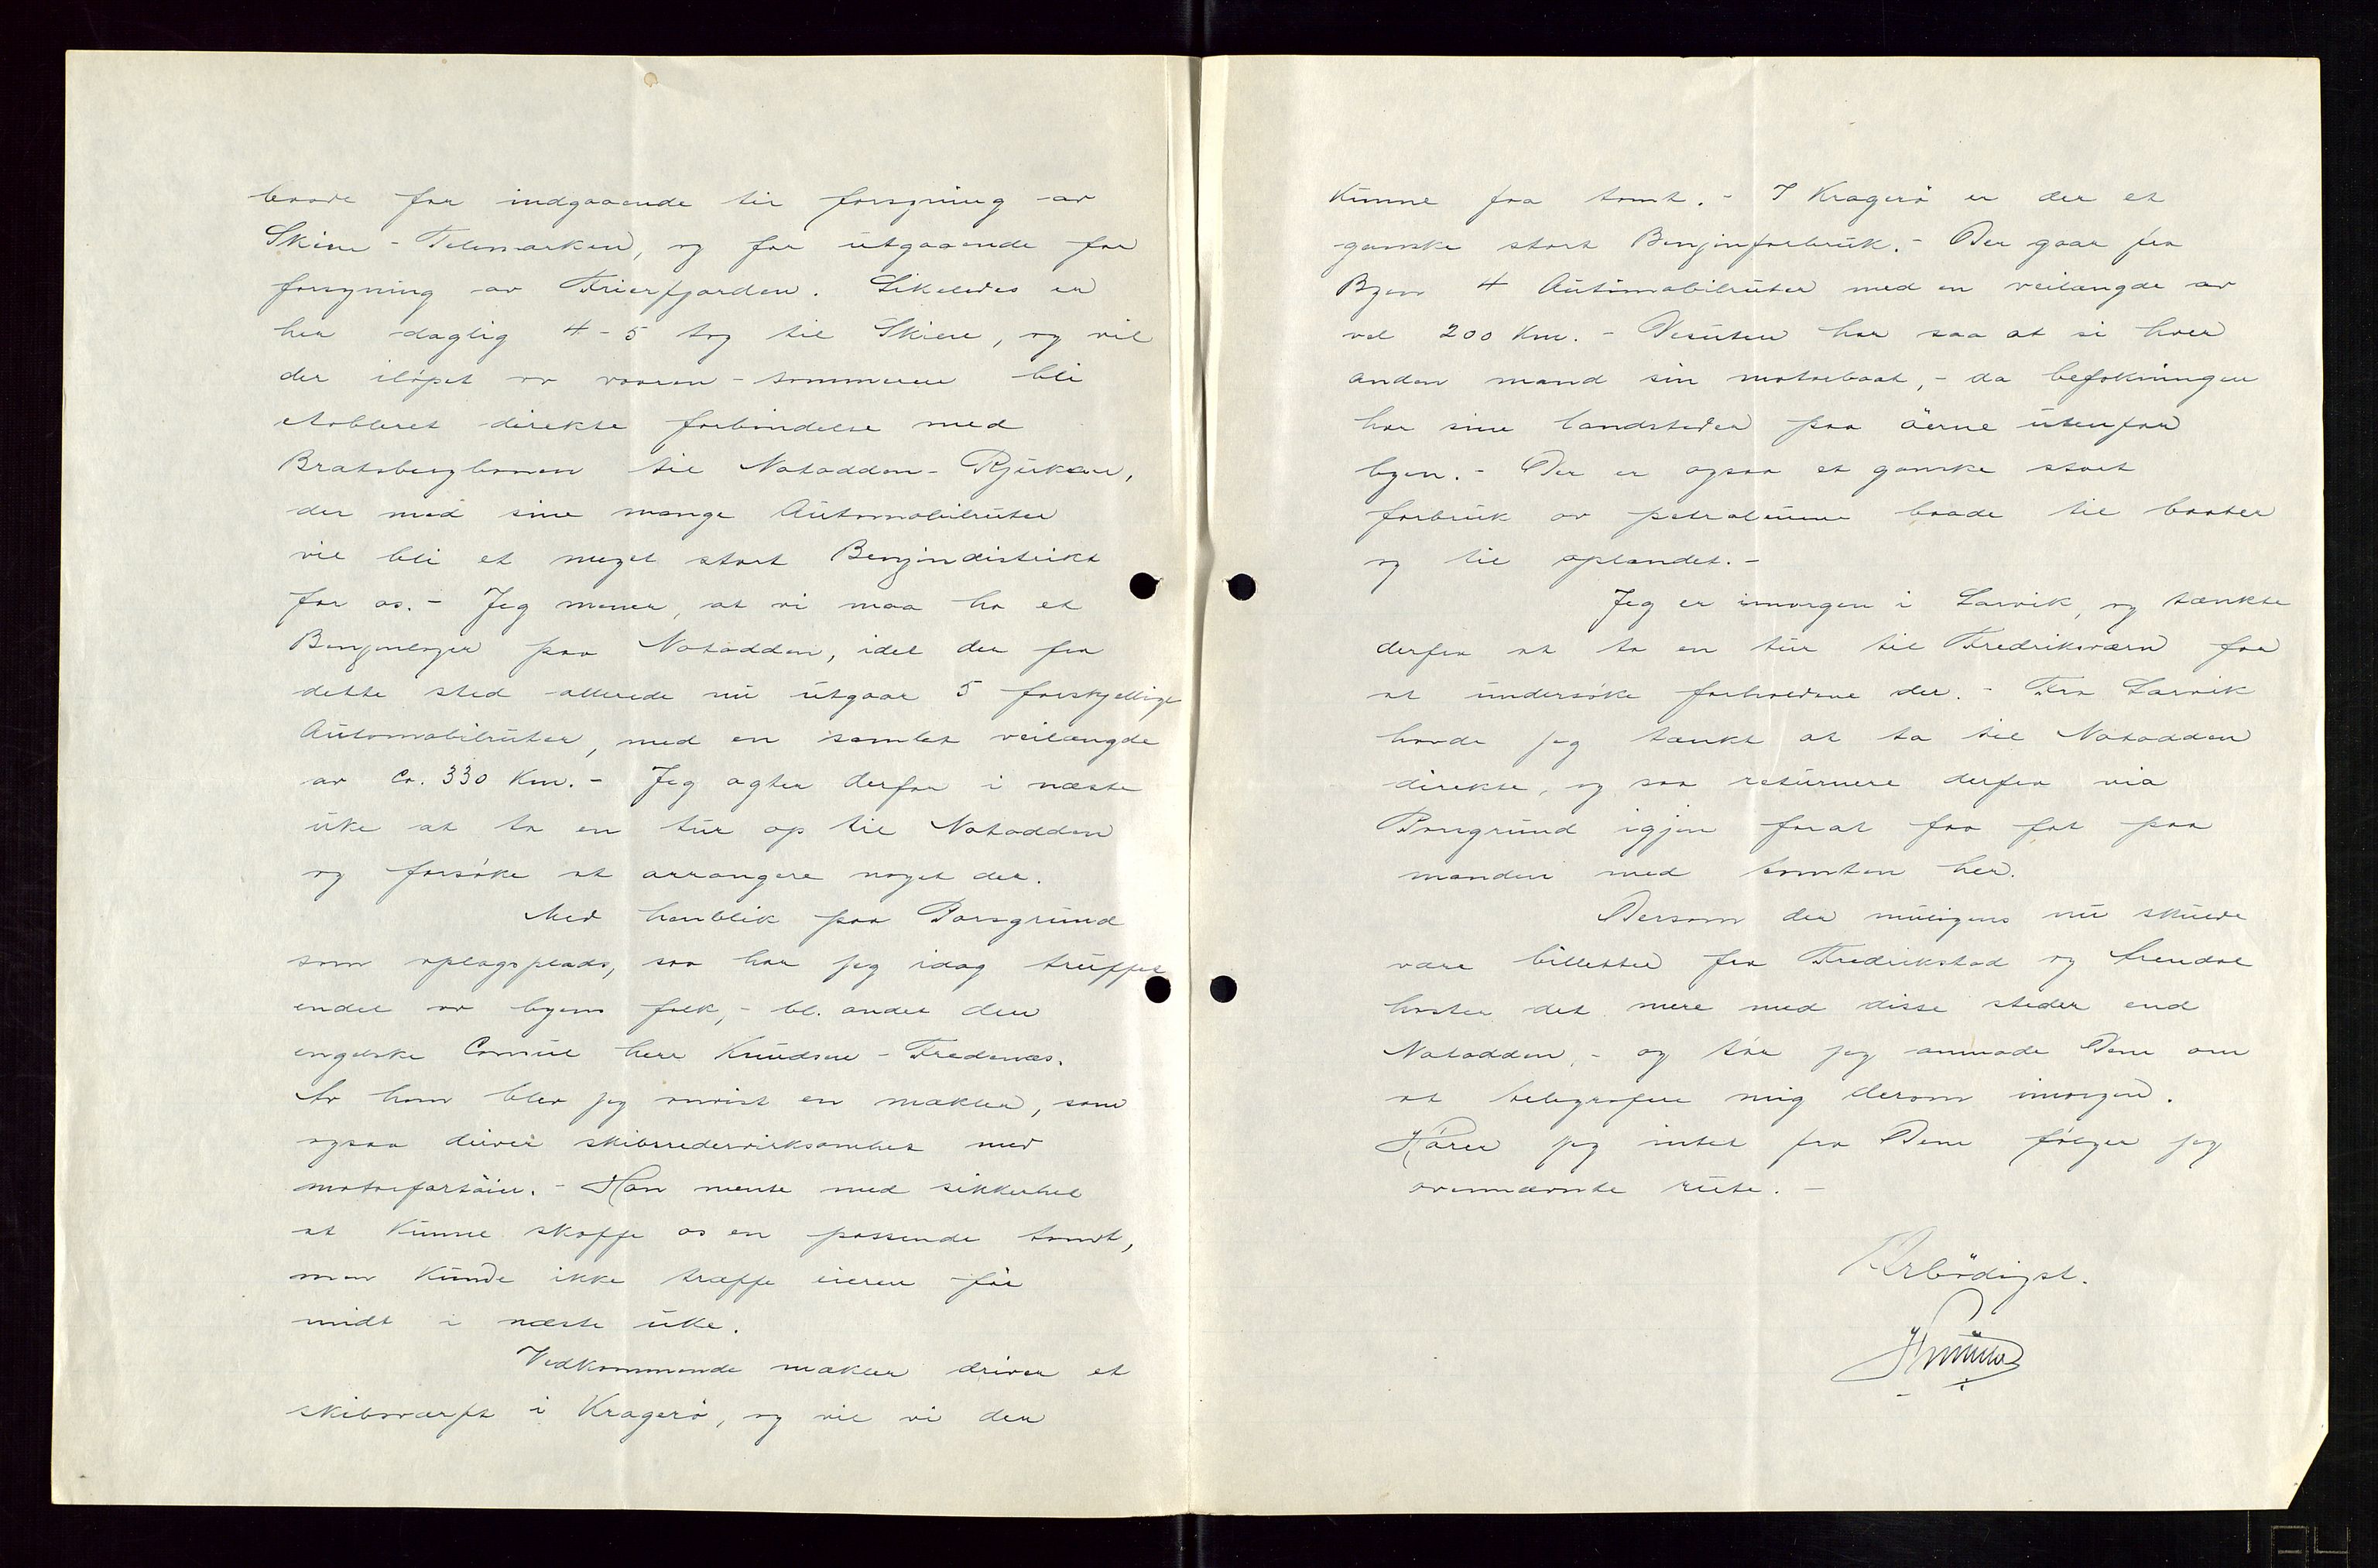 baade for indgaaende til forsyning av
Skien - Telemarken, og for utgaaende for
forsyning av Frierfjorden. Likeledes er
her daglig 4-5 tog til Skien, og vil
der iløpet av vaaren - sommeren bli
etableret direkte forbindelse med
Bratsbergbanen til Notodden - Rjukan,
der med sine mange Automobilruter
vil bli et meget stort Benzindistrikt
for os. - Jeg mener, at vi maa ha et
Benzinlager paa Notodden, idet der fra
dette sted allerede nu utgaar 5 forskjellige
Automobilruter, med en samlet veilængde
av ca. 330 Km. - Jeg agter derfor i næste
uke at ta en tur op til Notodden
og forsøke at arrangere noget der.
Med henblik paa Porsgrund
som oplagsplads, saa har jeg idag truffet
endel av byens folk, - bl. andet den
engelske Consul herr Knudsen - Frednæs.
Av ham blev jeg anvist en mækler, som
ogsaa driver skibsredervirksomhet med
motorfartöier. - Han mente med sikkerhet
at kunne skaffe os en passende tomt,
men kunde ikke træffe eieren før
midt i næste uke.
Vedkommende mækler driver et
skibsværft i Kragerø, og vil vi der
kunne faa tomt. - I Kragerö er der et
ganske stort Benzinforbruk. - Der gaar fra
Byen 4 Automobilruter med en veilængde av
vel 200 Km. - Desuten har saa at si hver
anden mand sin motorbaat, - da befolkningen
har sine landsteder paa öerne utenfor
byen. - Der er ogsaa et ganske stort
forbruk av petroleum baade til baater
og til oplandet. -
Jeg er imorgen i Larvik, og tænkte
derfra at ta en tur til Fredriksværn for
at undersöke forholdene der. - Fra Larvik
havde jeg tænkt at ta til Notodden
direkte, og saa returnere derfra via
Porsgrund igjen forat faa fat paa
manden med tomten her.
Dersom der muligens nu skulde
være billetter fra Fredrikstad og Arendal
haster det mere med disse steder end
Notodden, - og tør jeg anmode Dem om
at telegrafere mig derom imorgen.
Hörer jeg intet fra Dem fölger jeg
ovennævnte rute. -
Ærbödigst.